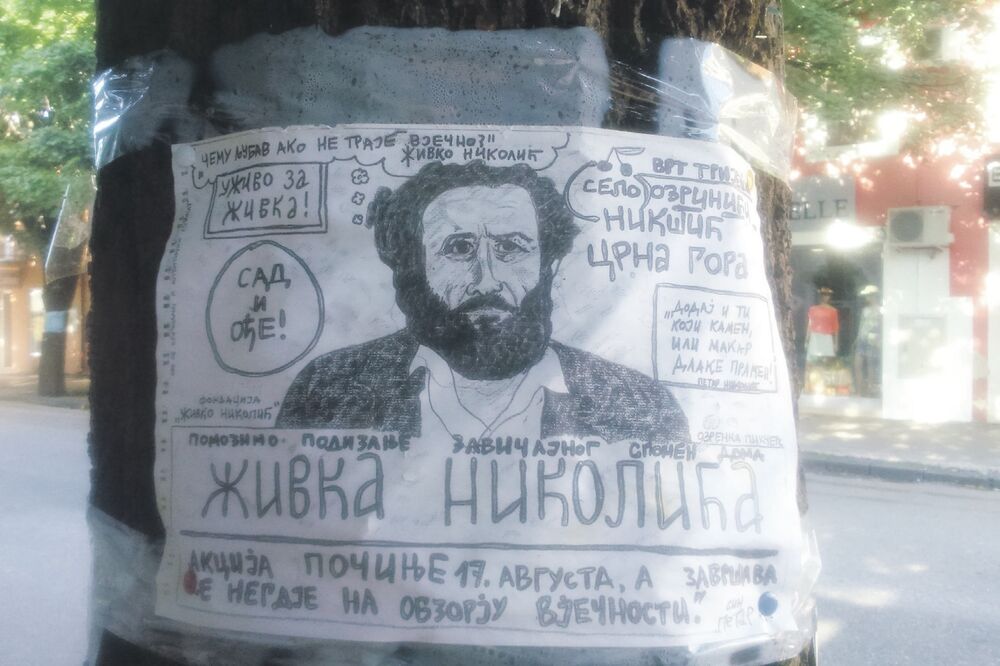 „ЧЕМУ ЉУБАВ АКО НЕ ТРАЈЕ ВЈЕЧНО?"
ЖИВКО НИКОЛИЋ
УЖИВО ЗА
ЖИВКА!
САД
И
ОЂЕ!
ВРТ
СЕЛО ОЗРИНИЋИ
НИКШИЋ
ЦРНА ГОРА
„ДОДАЈ И ТИ
КОЈИ КАМЕН,
ИЛИ МАКАР
ДЛАКЕ ПРАМЕН!"
ПЕТАР НИКОЛИЋ
ФОНДАЦИЈА
"ЖИВКО НИКОЛИЋ"
ПОМОЗИМО ПОДИЗАЊЕ ЗАВИЧАЈНОГ СПОМЕН ДОМА
ЖИВКА НИКОЛИЋА
АКЦИЈА ПОЧИЊЕ 17. АВГУСТА, А ЗАВРШАВА
СЕ НЕГДЈЕ НА ОБЗОРЈУ ВЈЕЧНОСТИ."
СИН
ПЕТАР
ELLE